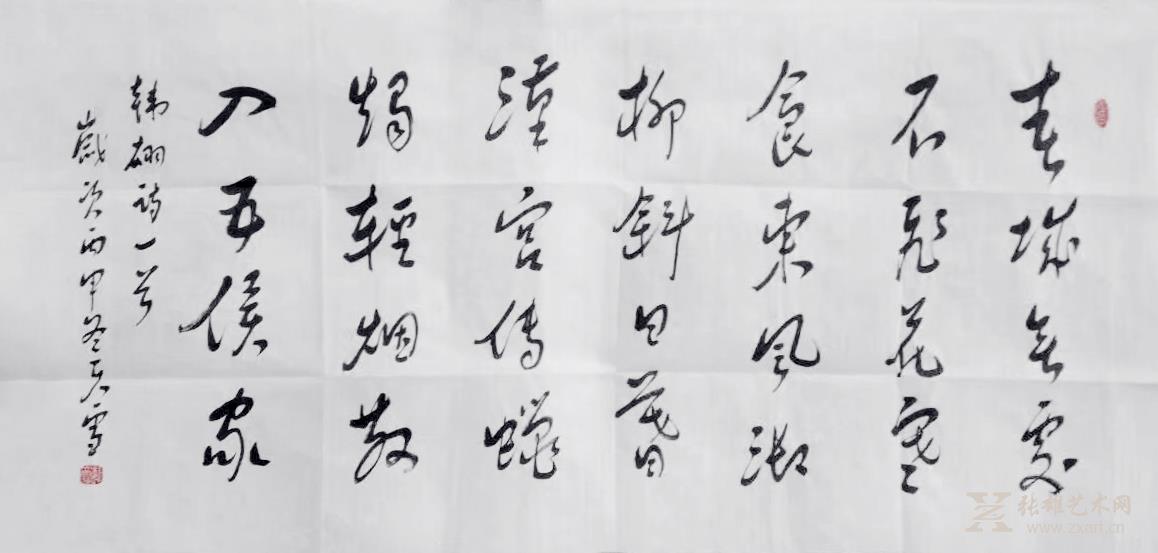 春城無處
不飛花寒
食東風御
柳斜日暮
漢宮傳蠟
燭輕烟散
入五侯家
韩翃詩一首
歲次丙申冬天雪
张雄艺术网
www.zxart.cn